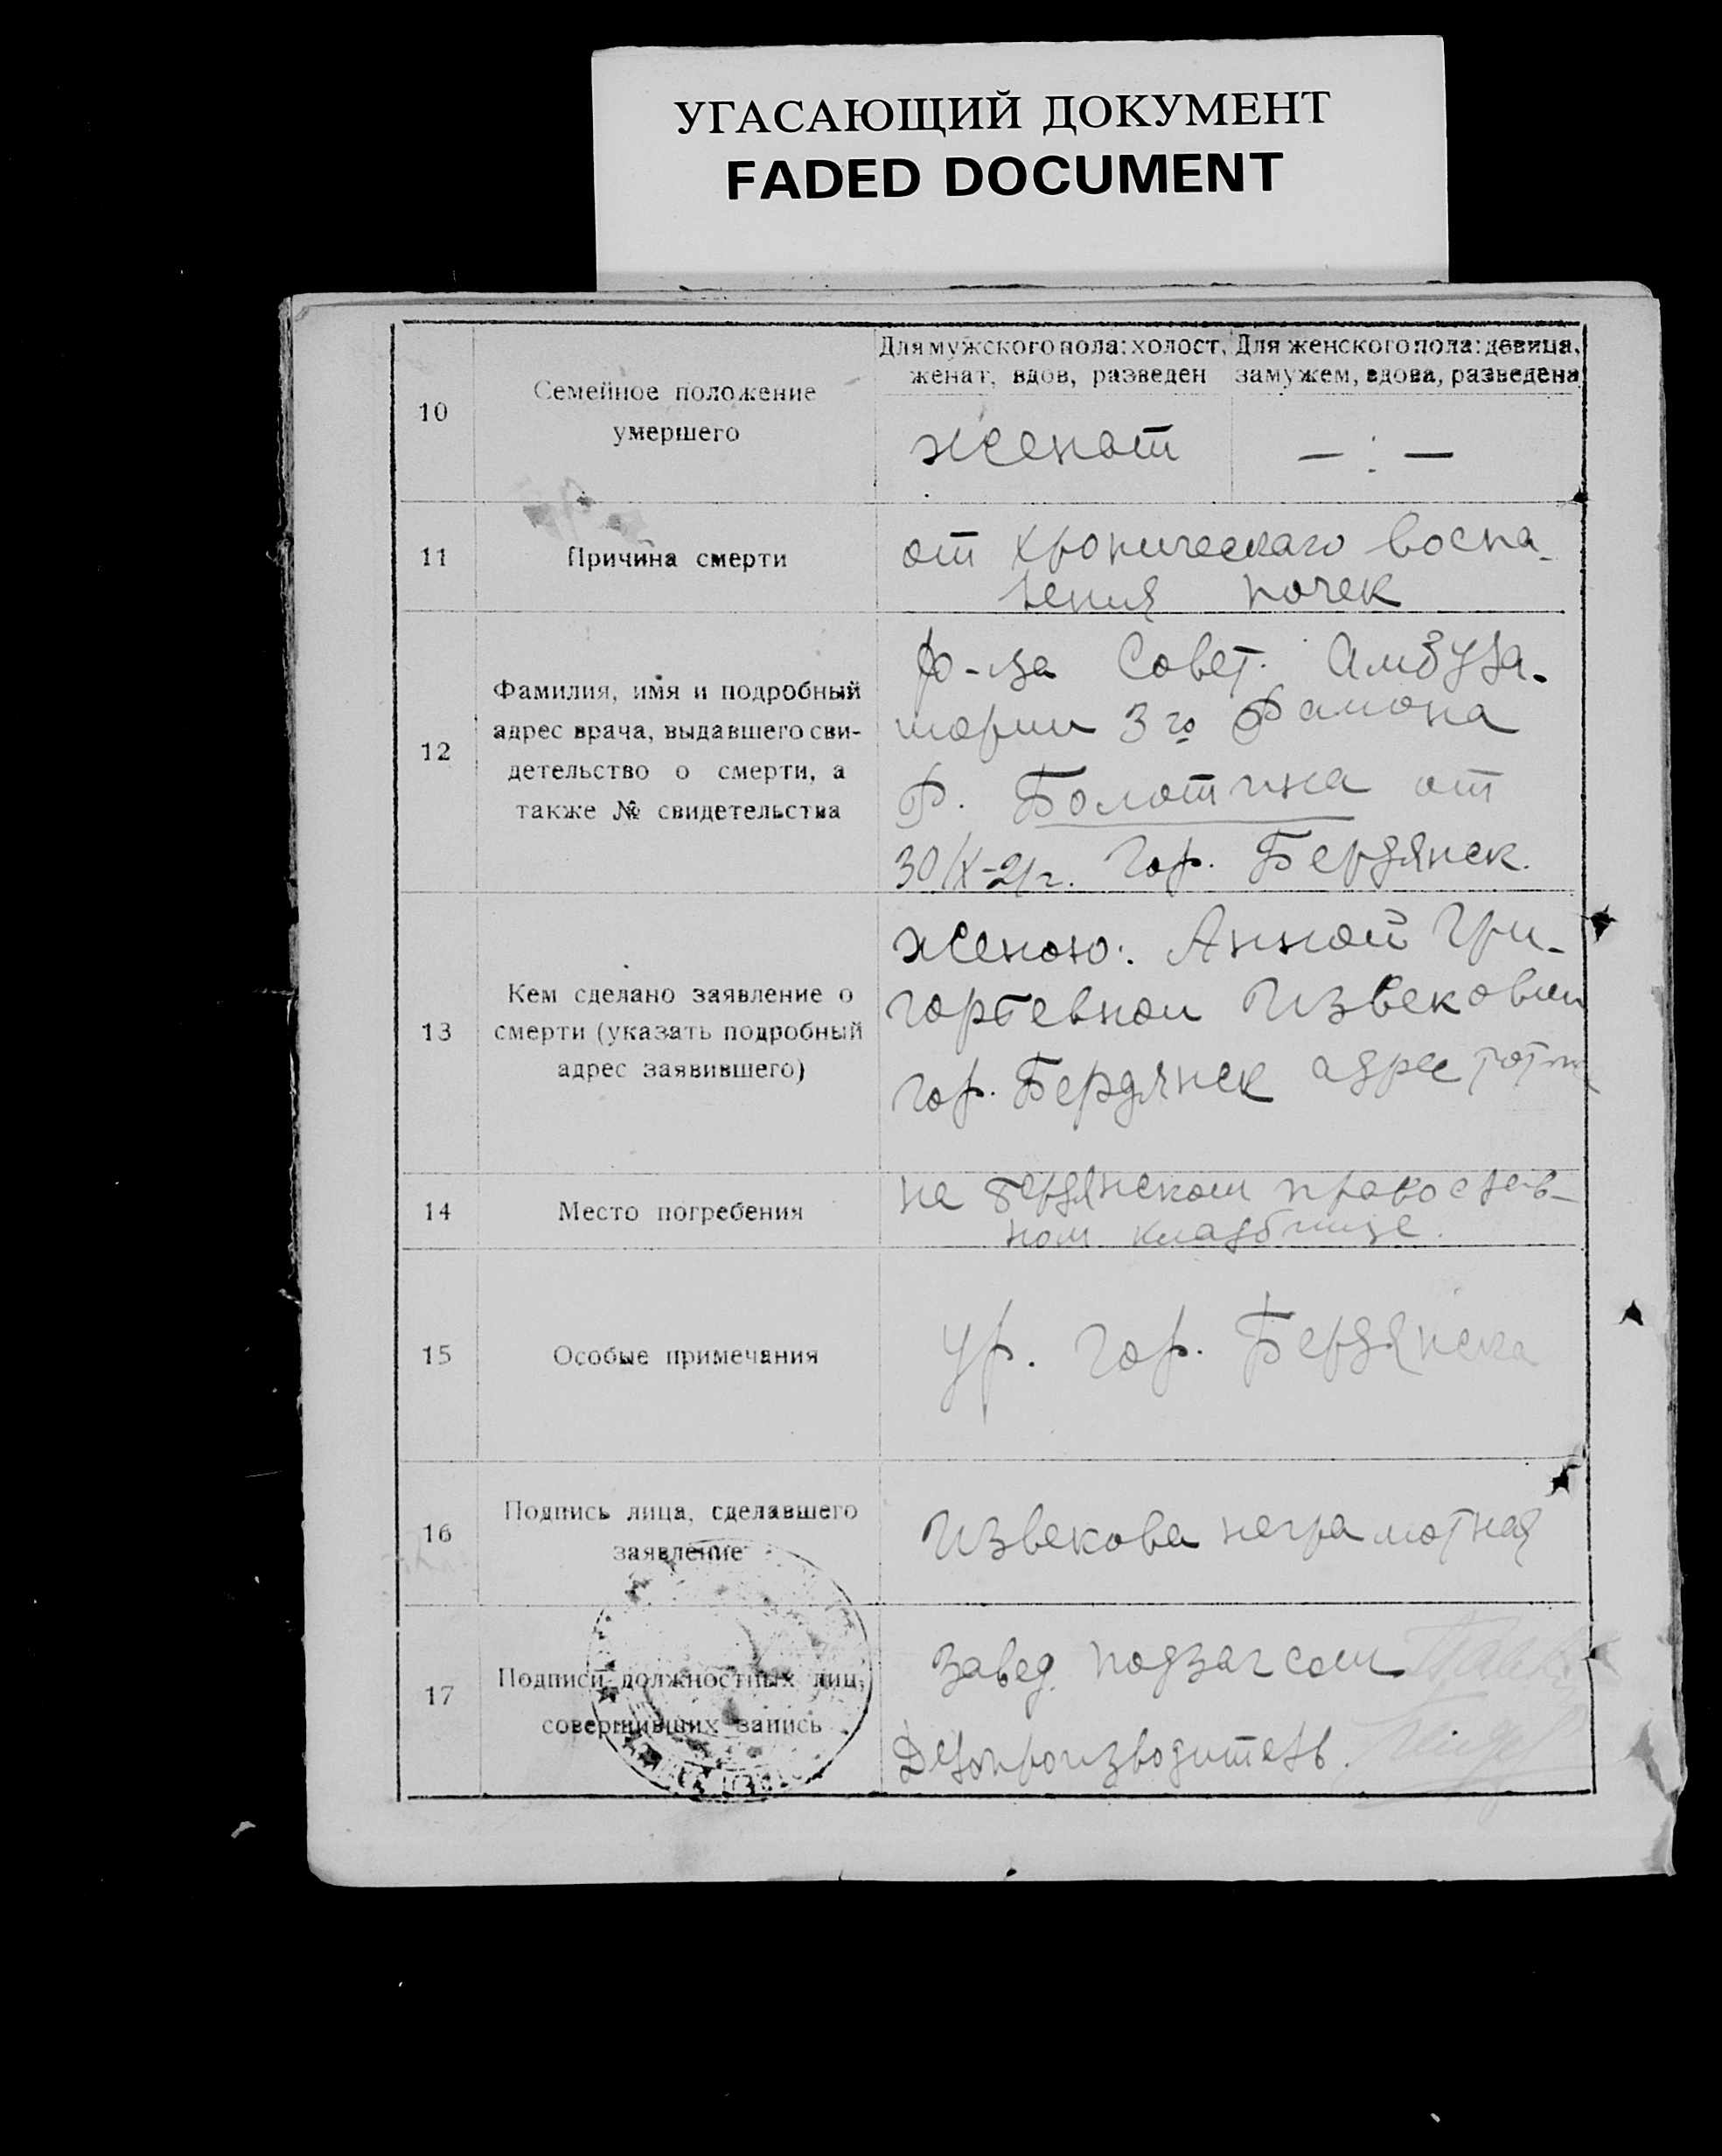 УГАСАЮЩИЙ ДОКУМЕНТ
FADED DOCUMENT
10
Семейное положение
умершего
Для мужского пола: холост,
женат, вдов, разведен
Для женского пола: девица,
замужем, вдова, разведена
женат
— : —
11
Причина смерти
от хроническаго воспа-
ления почек
12
Фамилия, имя и подробный
адрес врача, выдавшего сви-
детельство о смерти, а
также № свидетельства
Совет. Амбула-
тории 3го района
Болотина от
30/X-21г. гор. Бердянск.
13
Кем сделано заявление о
смерти (указать подробный
адрес заявившего)
женою: Анной Гри-
горьевной Извековой
гор. Бердянск адрес тотже
14
Место погребения
на бердянском православ-
ном кладбище.
15
Особые примечания
ур. гор. Бердянска
16
Подпись лица, сделавшего
заявление
Извекова неграмотная
17
Подписи должностных лиц,
совершивших запись
Завед. подзагсом
Делопроизводитель.